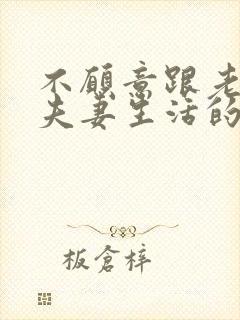 不愿意跟老
夫妻生活的
板仓梓